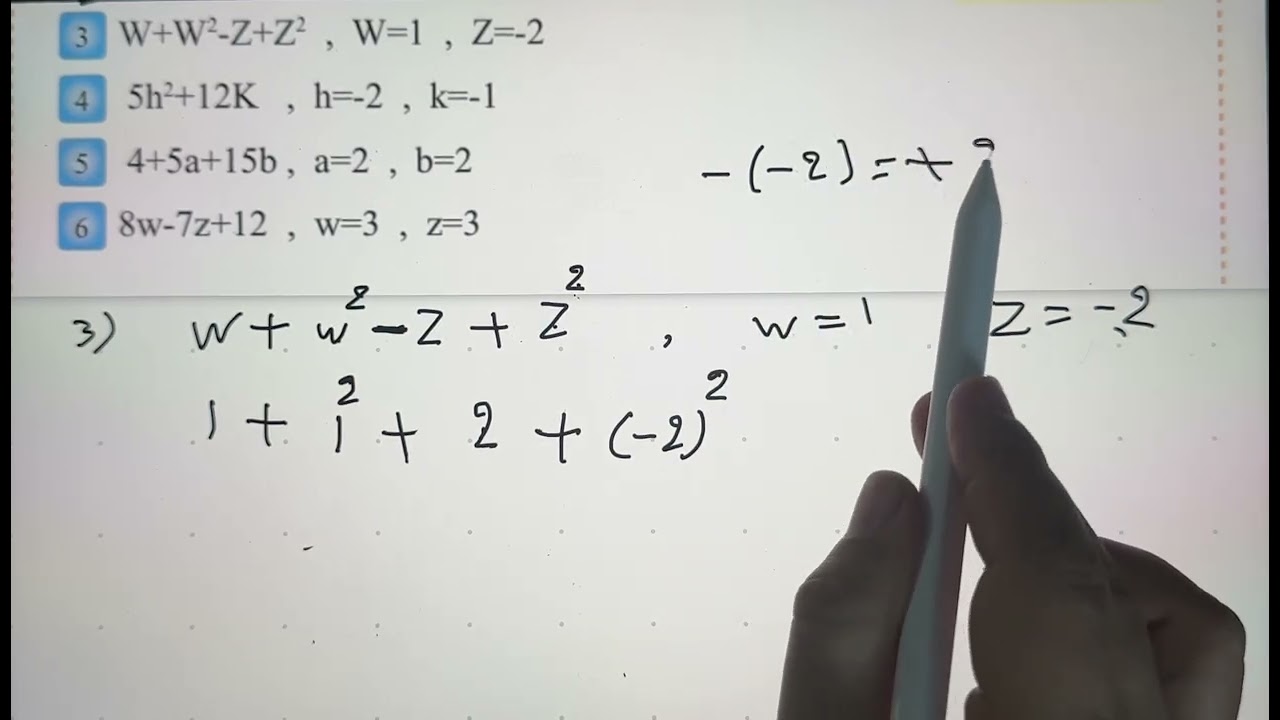 3 W+W²-Z+Z² , W=1 , Z=-2
4 5h²+12K , h=-2 , k=-1
5 4+5a+15b , a=2 , b=2
6 8w-7z+12 , w=3 , z=3
-(-2)=+
3) W+w²-Z+Z² , w=1 Z=-2
1+1²+2+(-2)²